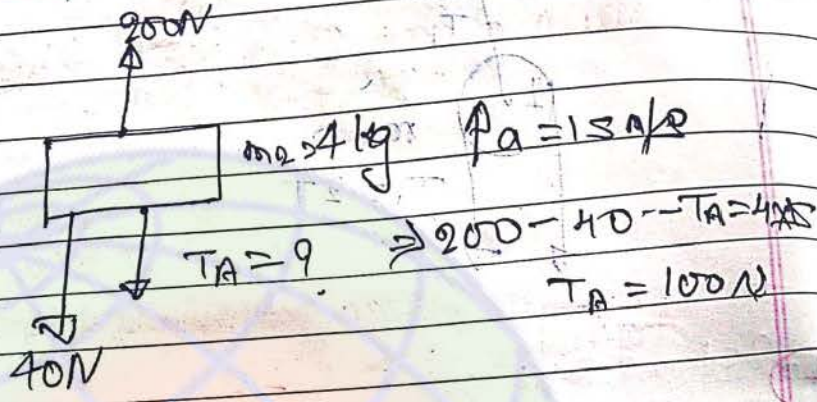 200N
m2=4kg ↑a=15m/s
TA=? ⇒ 200-40-TA=4×15
TA=100N
40N